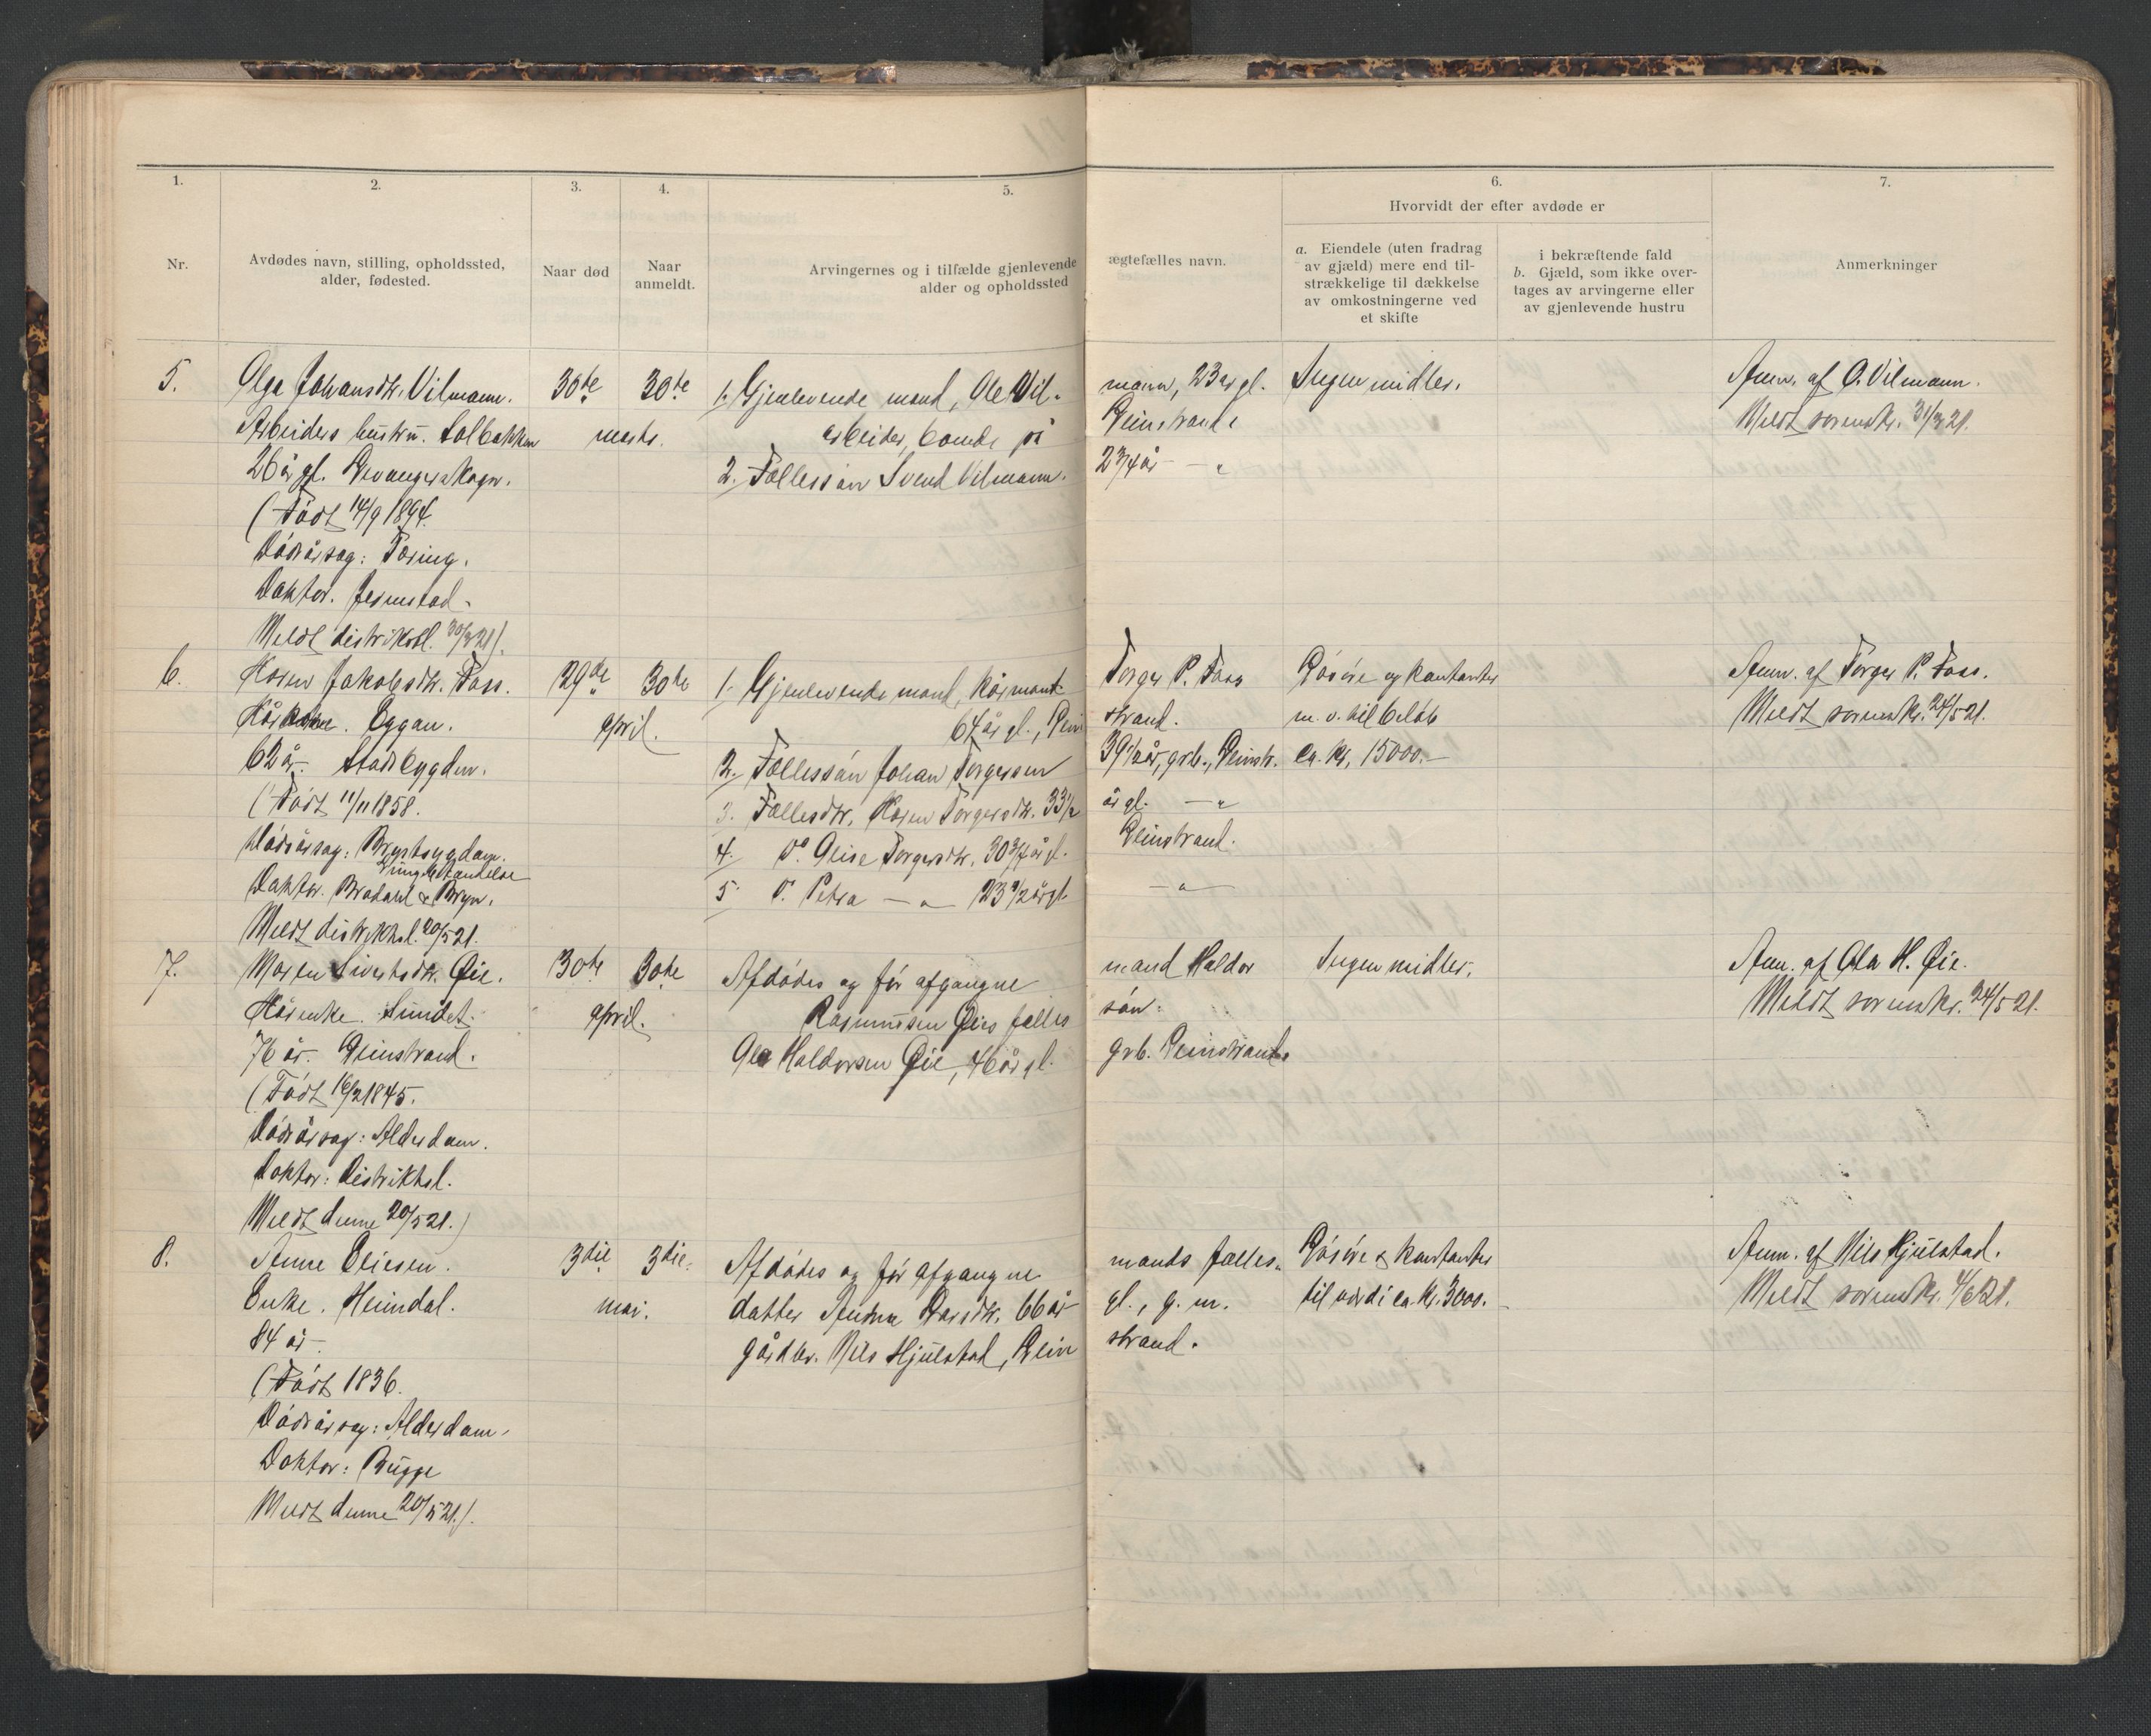 1.
2.
3.
4.
5.
6.
7.
Nr.
Avdødes navn, stilling, opholdssted,
alder, fødested.
Naar død
Naar
anmeldt.
Arvingernes og i tilfælde gjenlevende ægtefælles navn.
alder og opholdssted
Hvorvidt der efter avdøde er
a. Eiendele (uten fradrag
av gjæld) mere end til-
strækkelige til dækkelse
av omkostningerne ved
et skifte
i bekræftende fald
b. Gjæld, som ikke over-
tages av arvingerne eller
av gjenlevende hustru
Anmerkninger
5. Olga Johansdtr. Vilmann. 30te 30te 1. Gjenlevende mand, Ole Vil- mann, 23 år gl. Ingen midler. Anm. af O. Vilmann.
Arbeiders hustru. Solbakken marts. arbeider, boende på Leinstrand Meldt sorenskr. 31/3 21.
26 år gl. Levanger skogn. 2. Fællessøn Svend Vilmann. 2 3/4 år — „
(Født 14/9 1894.
Dödsårsag: Tæring.
Doktor. Jermstad.
Meldt distriktsl. 30/3 21).
6. Karen Jakobsdtr. Foss. 29de 30te 1. Gjenlevende mand, kårmand Torger P. Foss Løsøre og kontanter Anm. af Torger P. Foss.
Kårkone. Eggan. april. 64 år gl., Lein strand. m. v. til beløb Meldt sorenskr. 24/5 21.
62 år. Stadsbygden. 2. Fællessøn Johan Torgersen 39 1/2 år, grb., Leinstr. ca. kr. 15000.—
(Født 11/11 1858. 3. Fællesdtr. Karen Torgersdtr. 33 1/2 år gl. — „
Dödsårsag: Brystsygdom. 4. Do Elise Torgersdtr. 30 3/4 år gl. Leinstrand.
Lungebetændelse
Doktor. Brodahl & Bryn. 5. Do Petra — „ — 23 1/2 år gl. — „ —
Meldt distriktsl. 20/5 21.
7. Maren Sivertsdtr. Øie. 30te 30te Afdödes og för afgangne mand Haldor Ingen midler. Anm. af Ola H. Øie.
Kårenke. Sundet. april. Rasmussen Øies fælles søn: Meldt sorenskr. 24/5 21.
76 år. Leinstrand. Ole Haldorsen Øie, 46 år gl. grb. Leinstrand.
(Født 16/2 1845.
Dödsårsag: Alderdom.
Doktor: Distriktsl.
Meldt denne 20/5 21.)
8. Anne Eliesen. 3die 3die. Afdödes og för afgangne mands fælles- Løsøre & kontanter Anm. af Nils Hjulstad.
Enke. Heimdal. mai. datter Larsdtr. 66 år gl., g. m. til værdi ca. kr. 3000.— Meldt sorenskr. 4/6 21.
84 år. gårdbr. Nils Hjulstad, Lein strand.
(Født 1836.
Dödsårsag: Alderdom.
Doktor: Bugge
Meldt denne 20/5 21.).